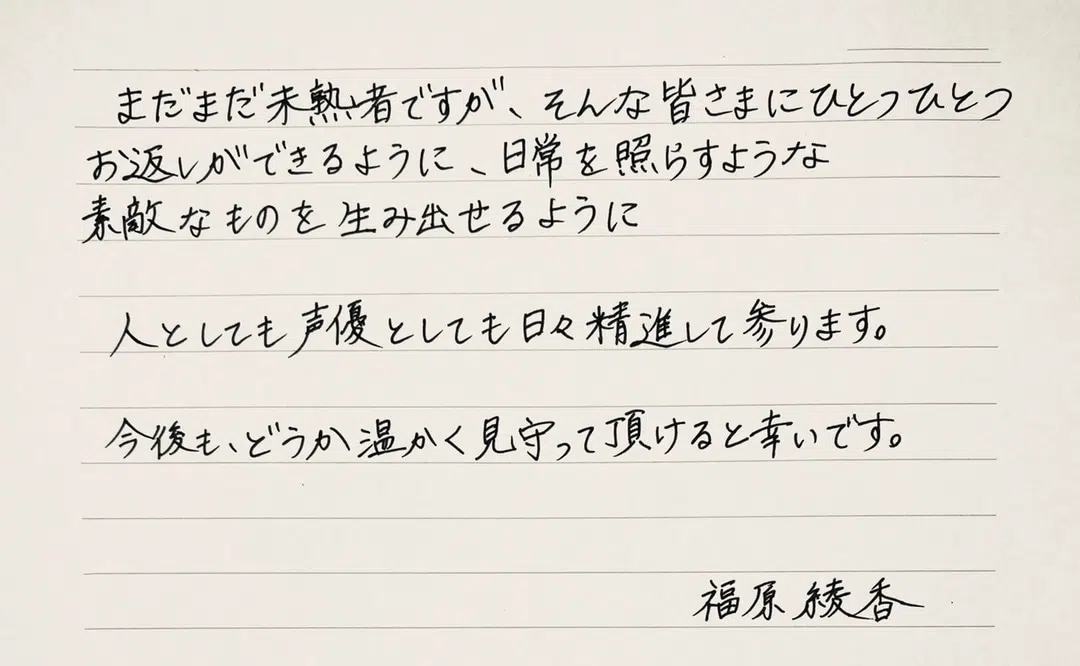 まだまだ未熟者ですが、そんな皆さまにひとつひとつ
お返しができるように、日常を照らすような
素敵なものを生み出せるように
人としても声優としても日々精進して参ります。
今後も、どうか温かく見守って頂けると幸いです。
福原綾香